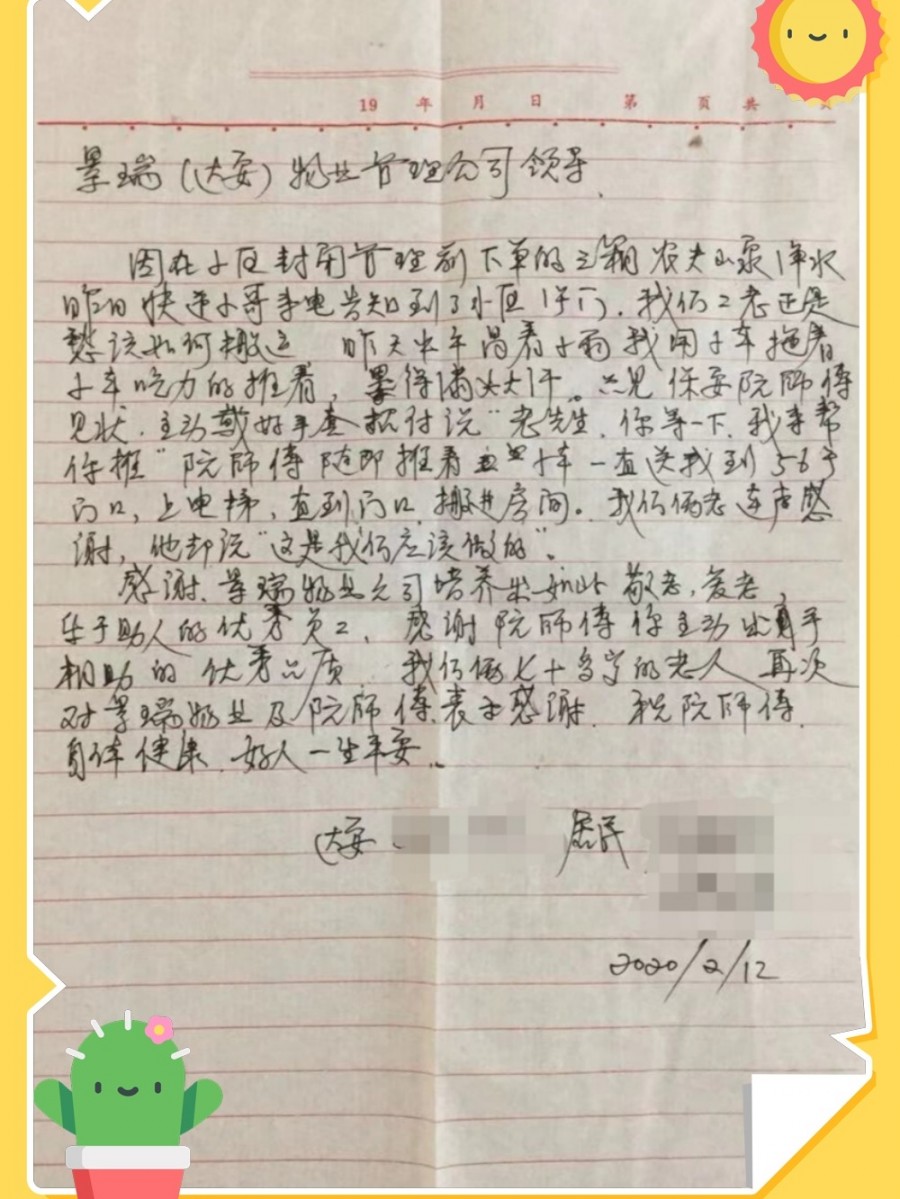 19 年 月 日 第 頁 共 頁
景瑞(达安)物业管理公司领导
因在小区封闭管理前下单的三箱农夫山泉净水
昨日快递小哥来电告知到了小区门. 我们二老正是
愁该如何搬运 昨天中午冒着小雨我用小车拖着
小车吃力的推着, 累得满头大汗。只见保安阮师傅
见状. 主动戴好手套 说"老先生. 你等一下. 我来帮
你推" 阮师傅随即推着 小车一直送我到56号
门口, 上电梯, 直到门口 搬进房间。我们俩老连声感
谢, 他却说"这是我们应该做的"。
感谢. 景瑞物业公司培养出如此敬老, 爱老,
乐于助人的优秀员工. 感谢阮师傅你主动出手
相助的优秀品质. 我们俩七十多岁的老人 再次
对景瑞物业及阮师傅表示感谢. 祝阮师傅.
身体健康. 好人一生平安.
达安 居民
2020/2/12